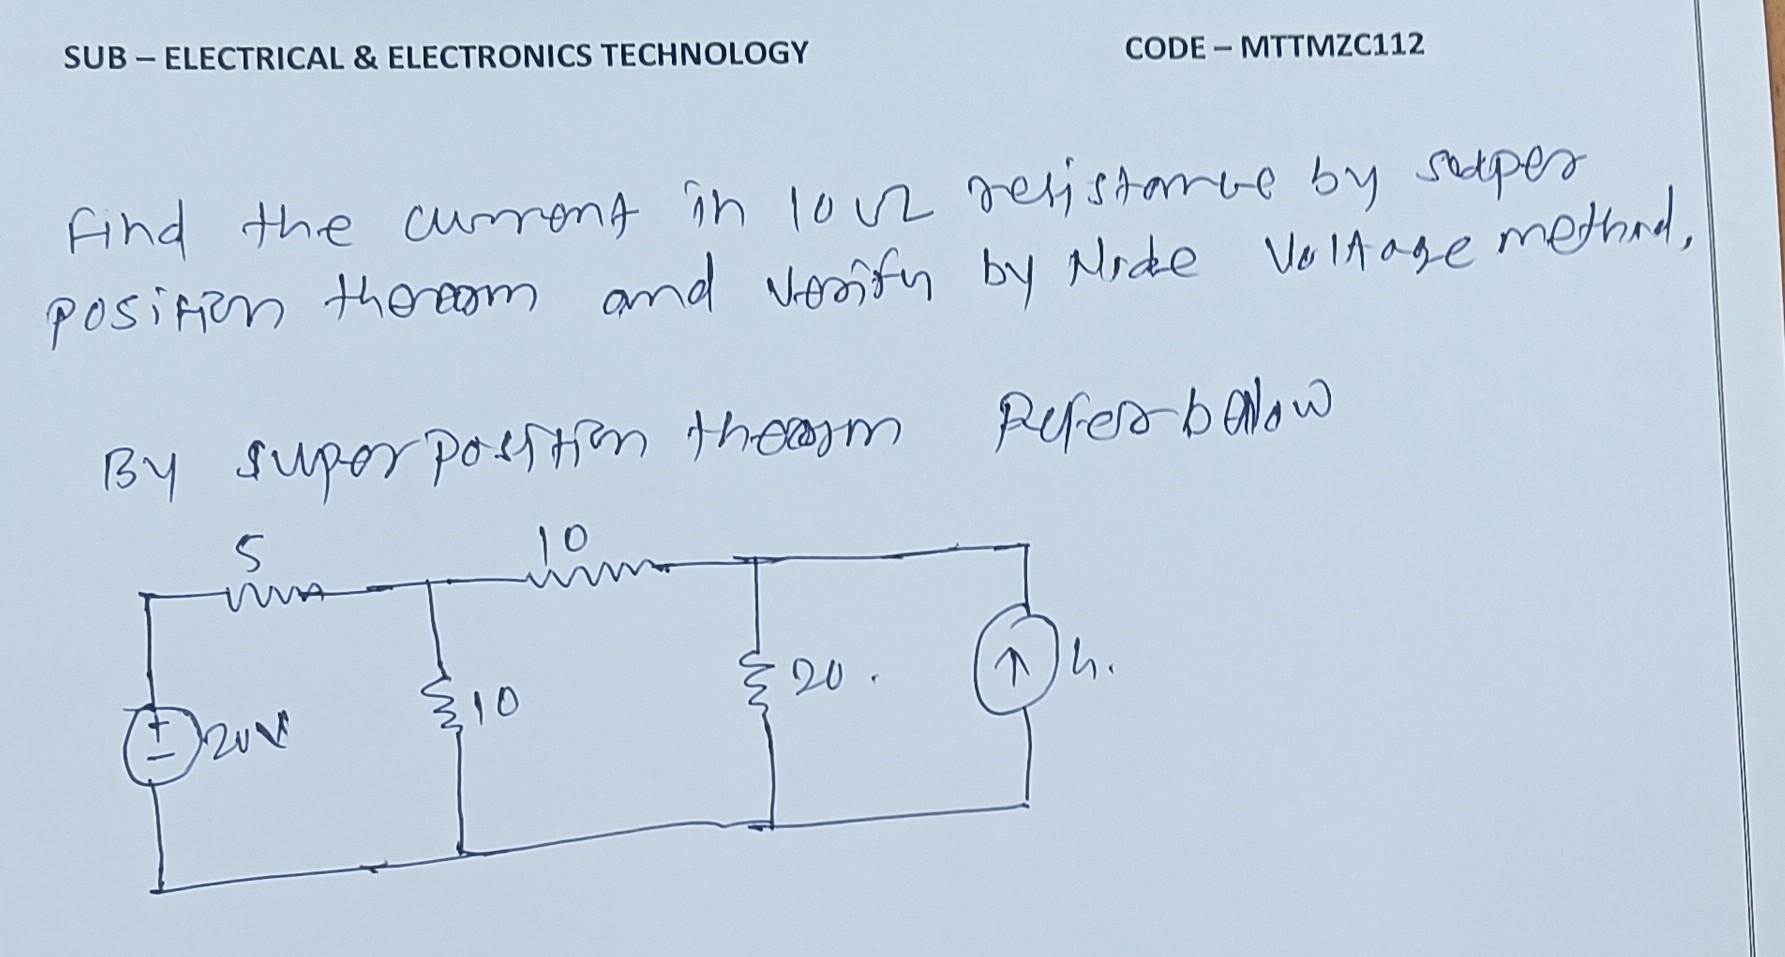 SUB – ELECTRICAL & ELECTRONICS TECHNOLOGY CODE – MTTMZC112
Find the current in 10 Ω resistance by super
position theorem and verify by Node Voltage method,
By superposition theorem Refer below
5
10
20V
10
20.
4.